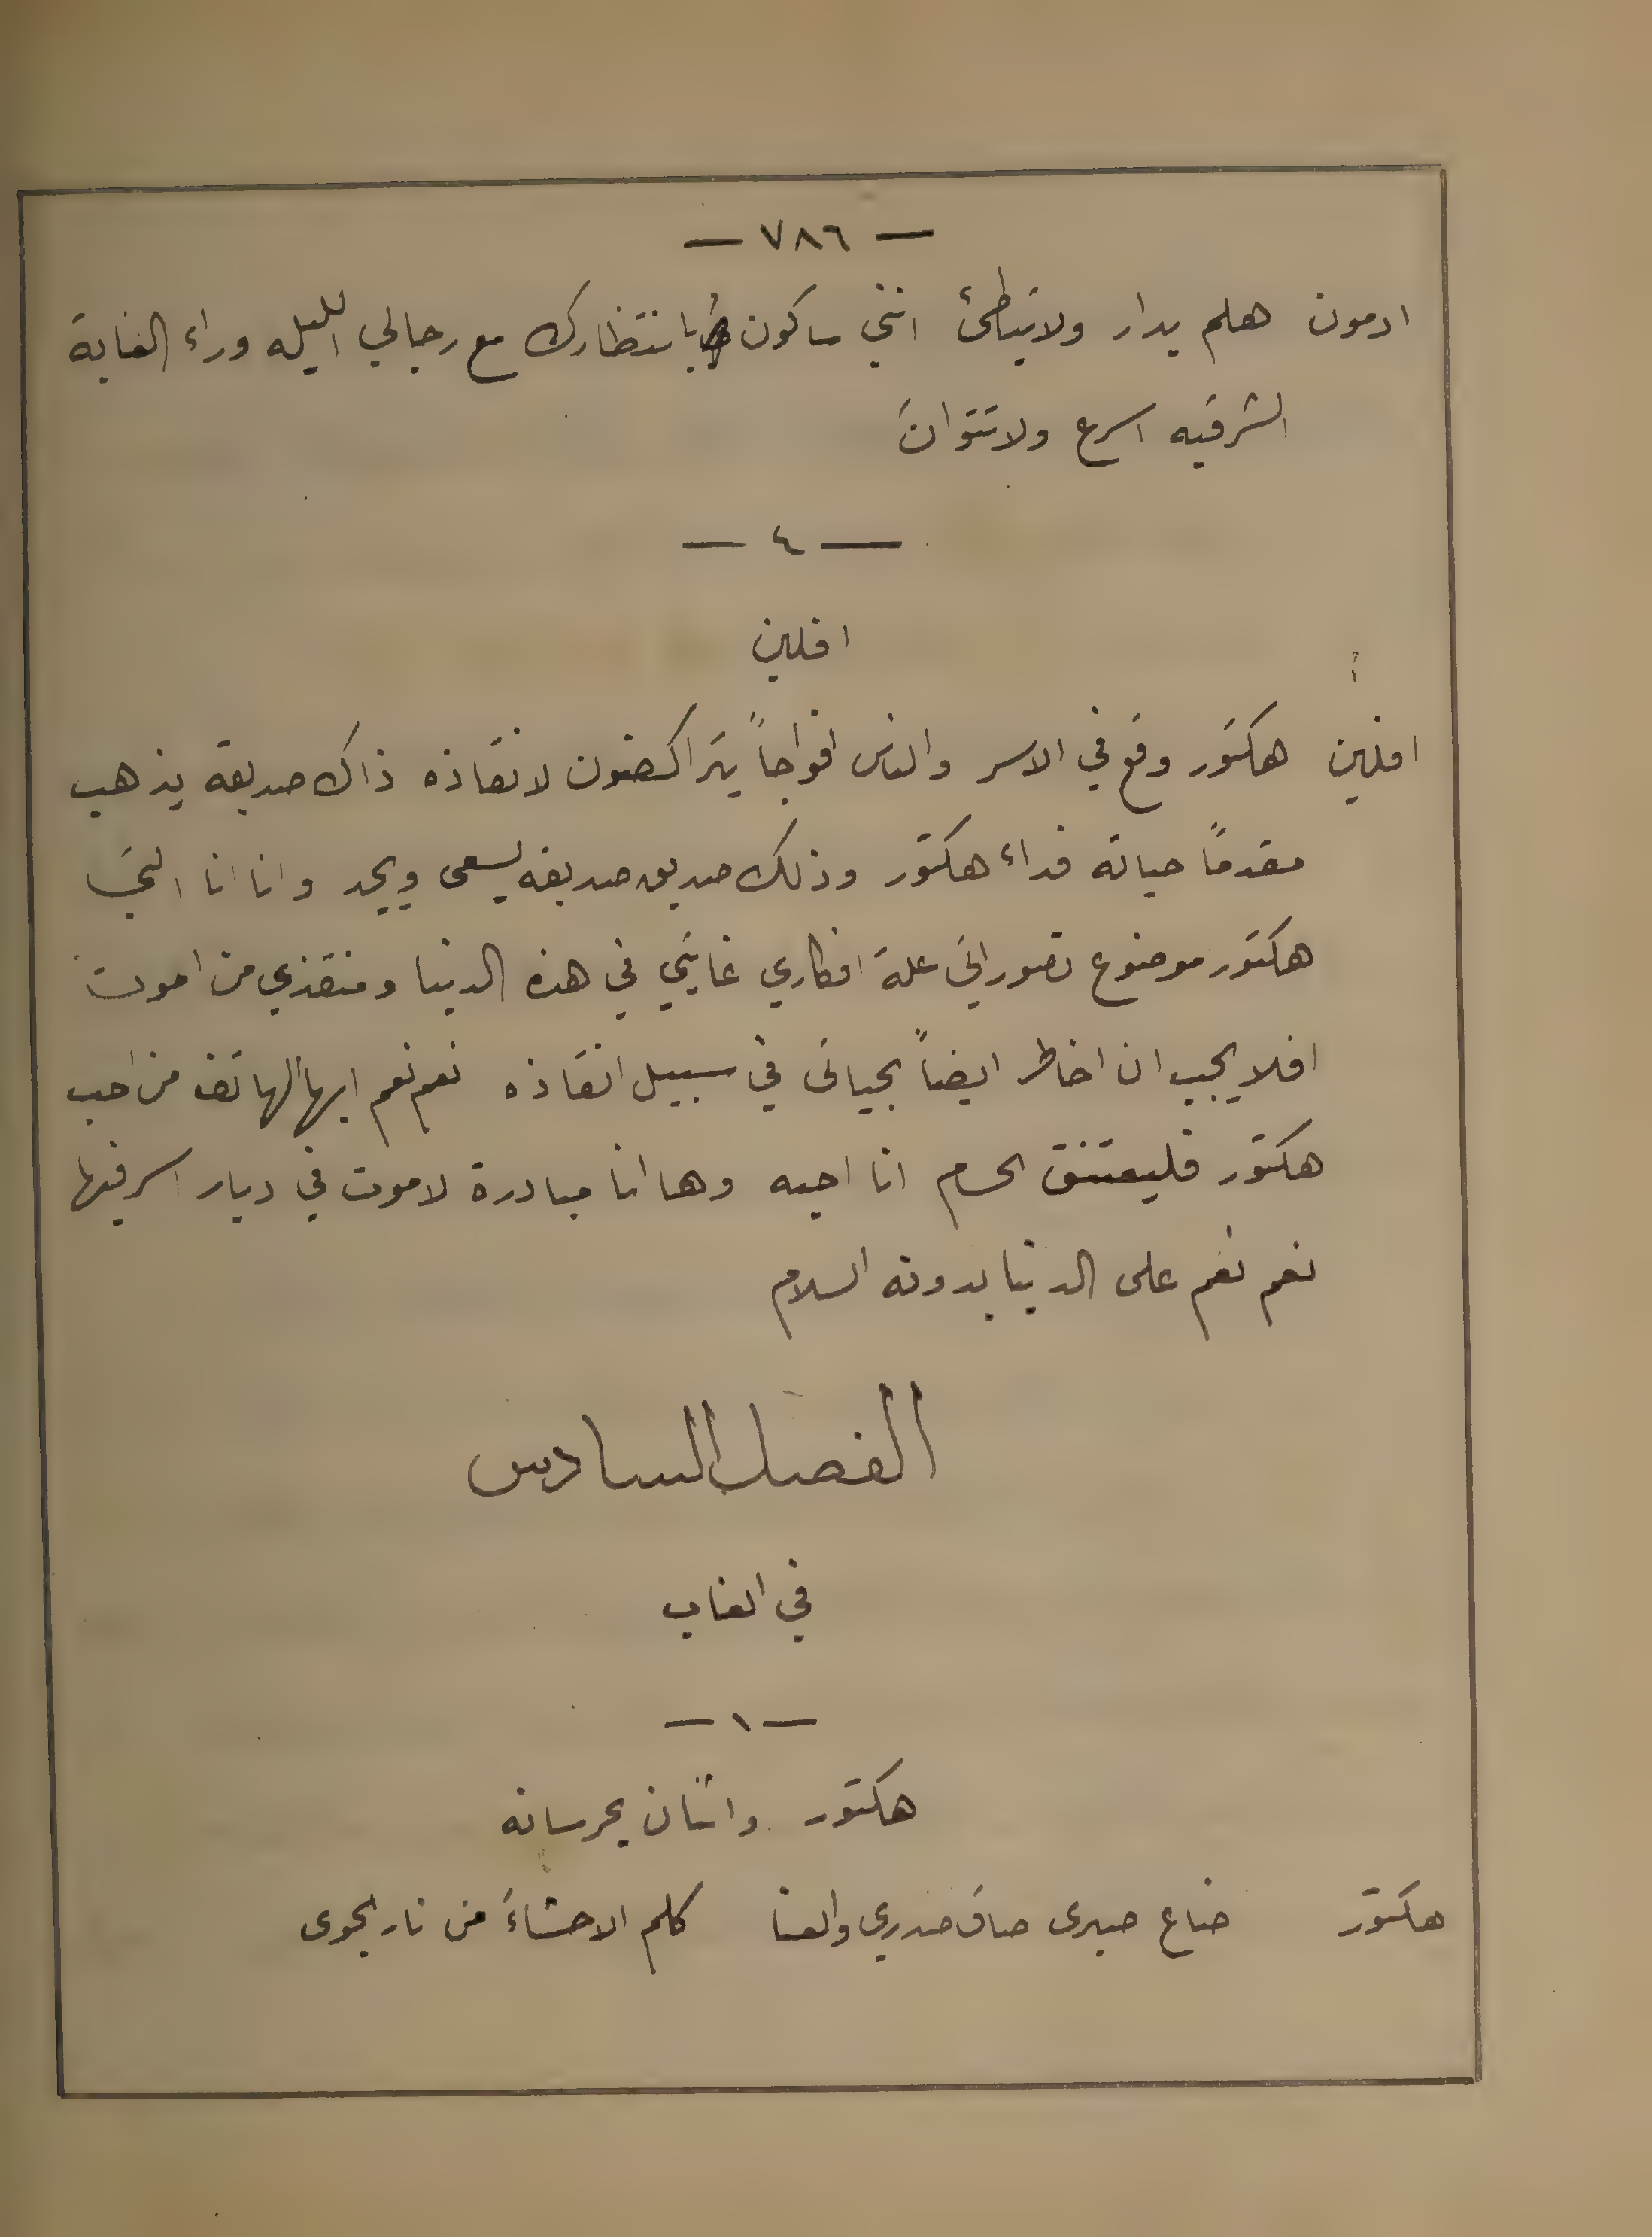 — ٧٨٦ —
ادمون هلم بدار ولا تتباطئ انني ساكون بانتظارك مع رجالي الليله وراء الغابة
الشرقيه اسرع ولا تتوان
— ٤ —
افلين
افلين هكتور وقع في الاسر والناس افواجاً يتراكضون لانقاذه ذاك صديقه يذهب
مقدماً حياته فداء هكتور وذلك صديق صديقه يسعى ويجد وانا انا التي
هكتور موضوع تصوراتي علة افكاري غايتي في هذه الدنيا ومنقذي من الموت
افلا يجب ان اخاطر ايضاً بحياتي في سبيل انقاذه نعم نعم ايها الهاتف من احب
هكتور فليعتنق الحسام انا احبه وها انا مبادرة لاموت في ديار اسر فيها
نعم نعم على الدنيا بدونه السلام
الفصل السادس
في الغاب
— ١ —
هكتور واثنان يحرسانه
هكتور ضاع صبرى ضاق صدري والعنا كلم الاحشاءَ من نار الجوى